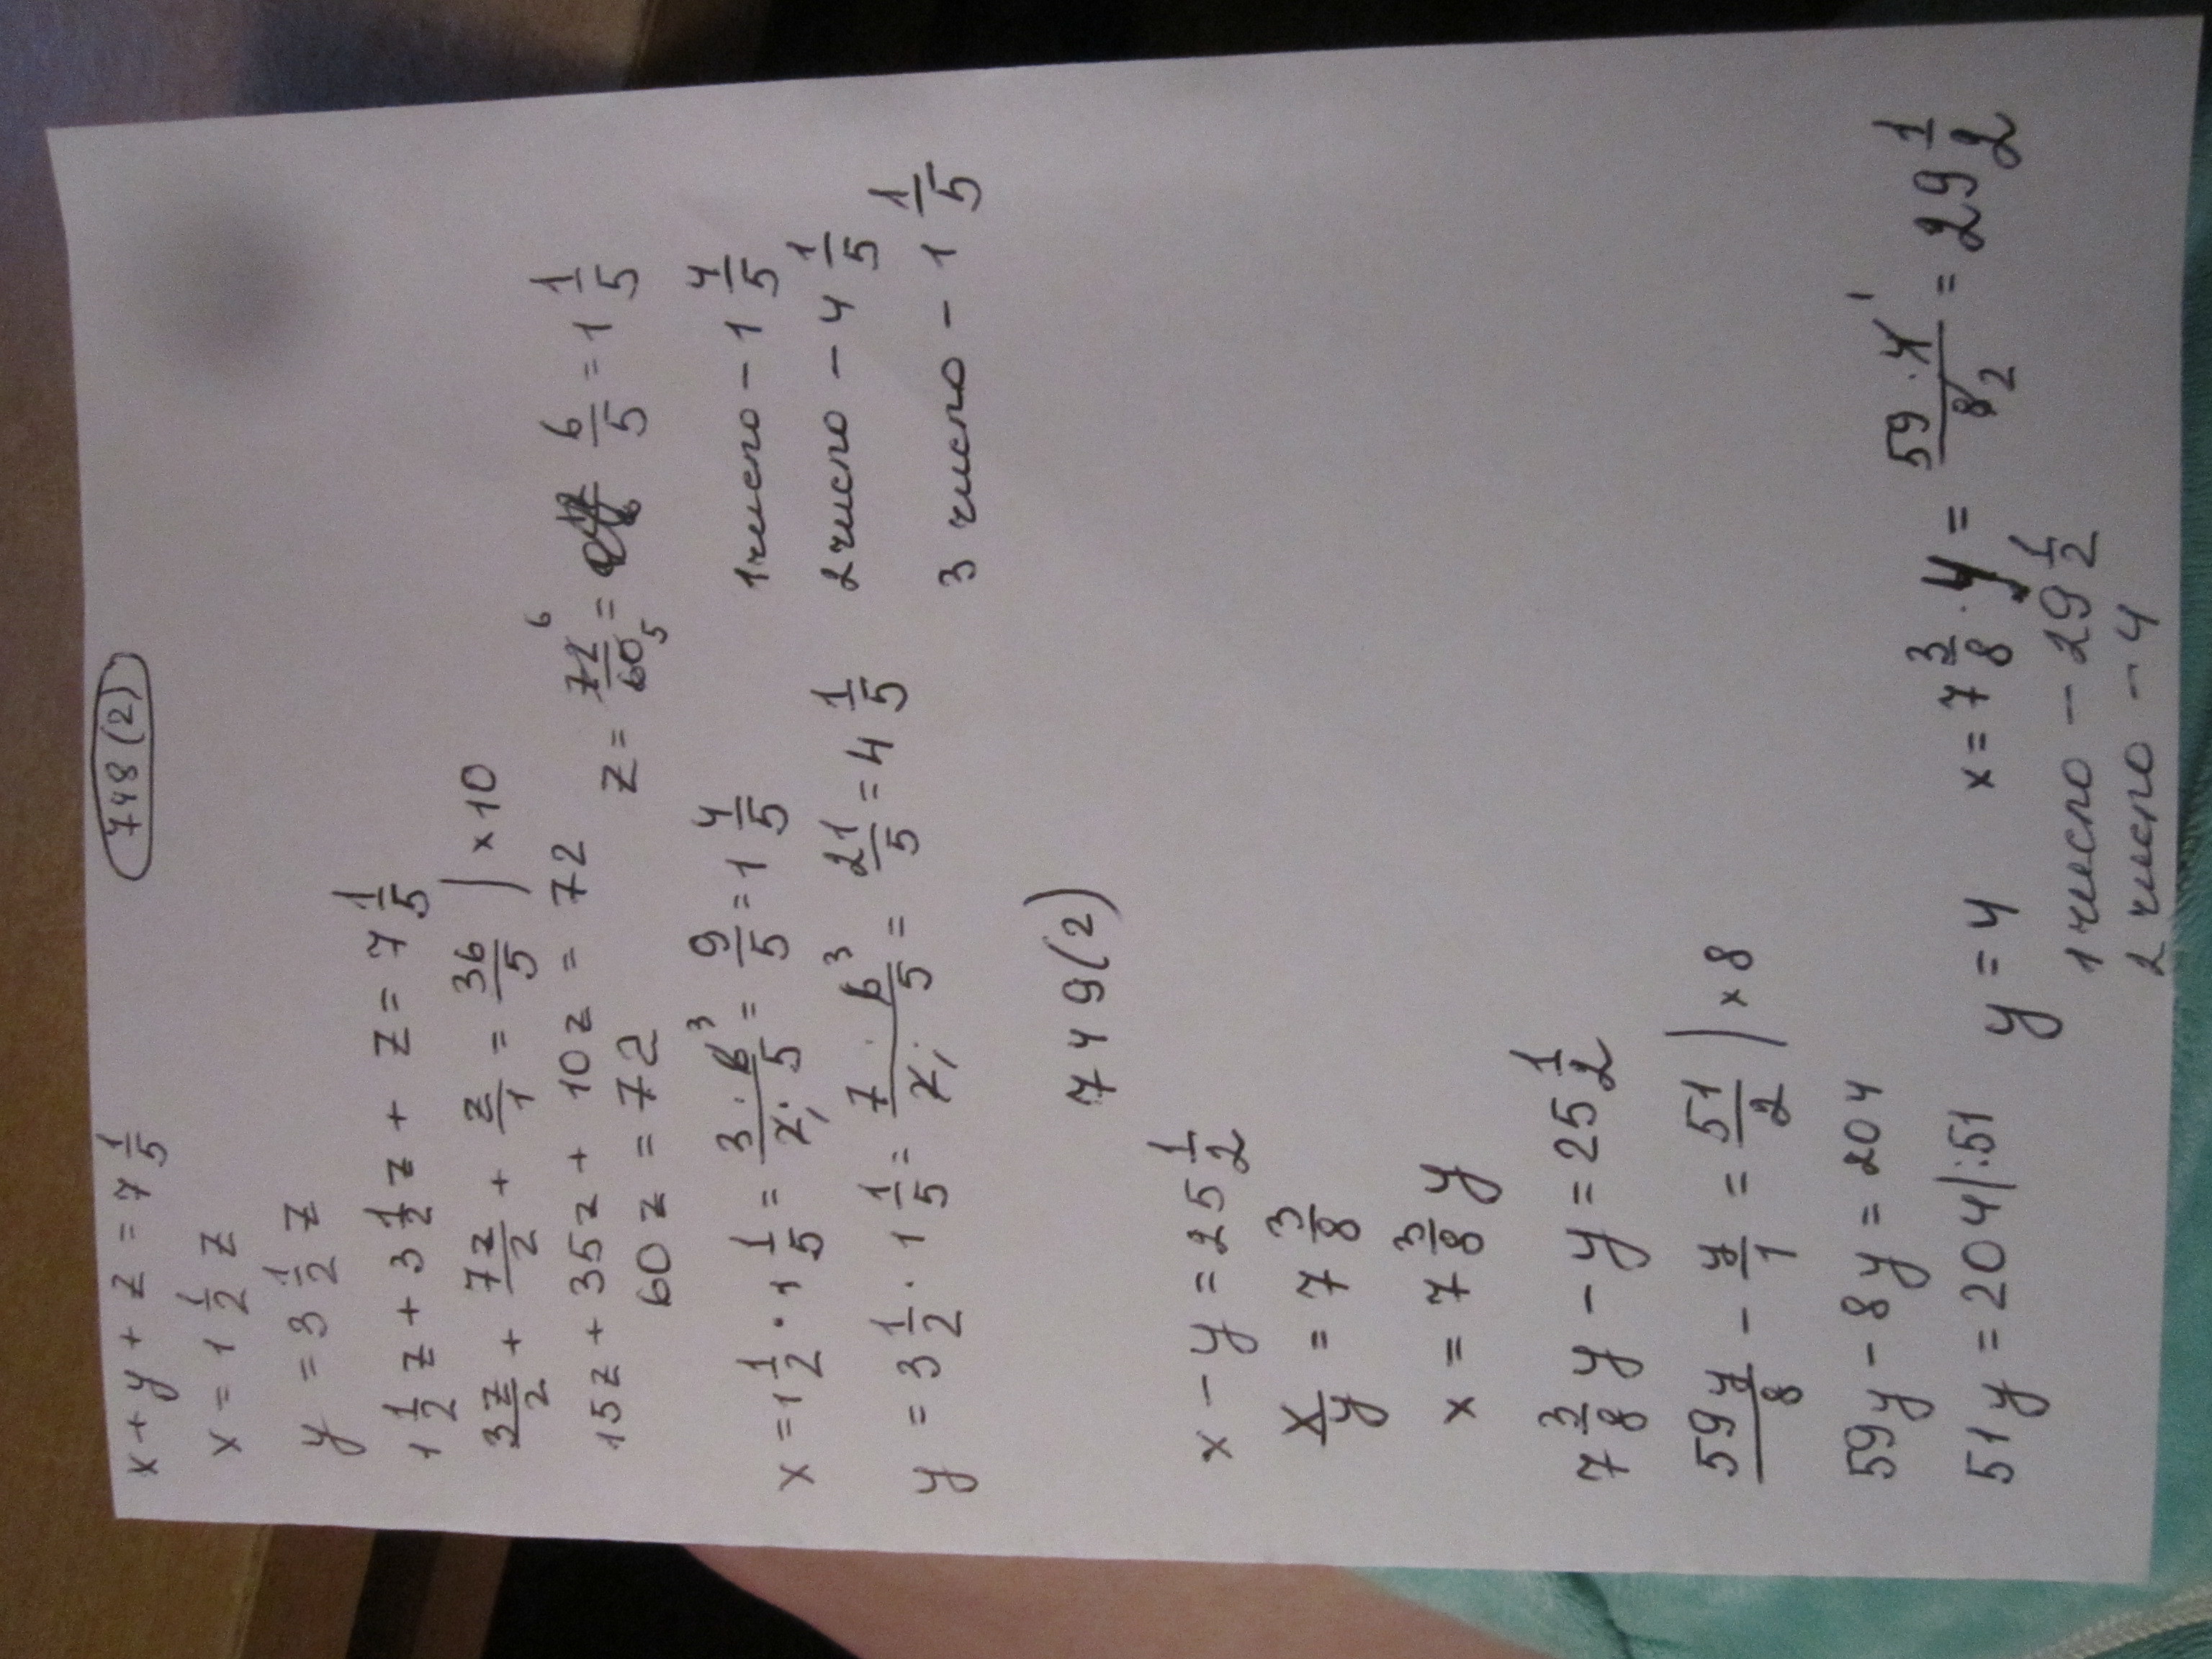 748(2)
x + y + z = 7 1/5
x = 1 1/2 z
y = 3 1/2 z
1 1/2 z + 3 1/2 z + z = 7 1/5
3z/2 + 7z/2 + z/1 = 36/5 | × 10
15z + 35z + 10z = 72
60z = 72
z = 72/60 6 5 = 6/5 = 1 1/5
x = 1 1/2 · 1 1/5 = 3 · 6 3/2 1 · 5 = 9/5 = 1 4/5
y = 3 1/2 · 1 1/5 = 7 · 6 3/2 1 · 5 = 21/5 = 4 1/5
1 число – 1 4/5
2 число – 4 1/5
3 число – 1 1/5
749(2)
x – y = 25 1/2
x/y = 7 3/8
x = 7 3/8 y
7 3/8 y – y = 25 1/2
59y/8 – y/1 = 51/2 | × 8
59y – 8y = 204
51y = 204 |:51
y = 4 x = 7 3/8 · 4 = 59 · 4 1/8 2 = 29 1/2
1 число – 29 1/2
2 число – 4